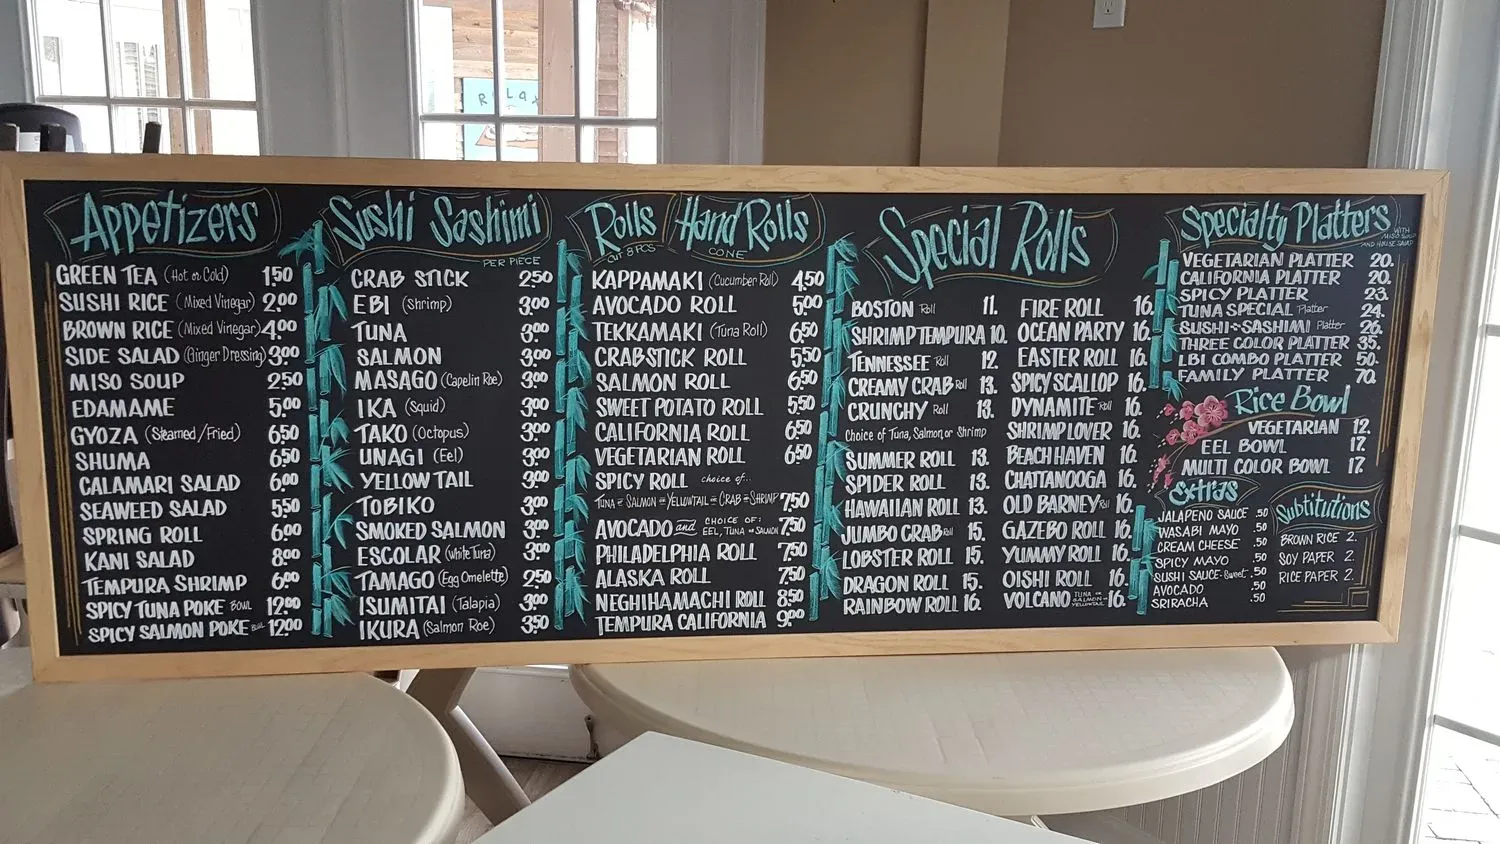 RELAX
Appetizers
GREEN TEA (Hot or Cold) 1.50
SUSHI RICE (Mixed Vinegar) 2.00
BROWN RICE (Mixed Vinegar) 4.00
SIDE SALAD (Ginger Dressing) 3.00
MISO SOUP 2.50
EDAMAME 5.00
GYOZA (Steamed/Fried) 6.50
SHUMA 6.50
CALAMARI SALAD 6.00
SEAWEED SALAD 5.50
SPRING ROLL 6.00
KANI SALAD 8.00
TEMPURA SHRIMP 6.00
SPICY TUNA POKE BOWL 12.00
SPICY SALMON POKE BOWL 12.00
Sushi Sashimi
PER PIECE
CRAB STICK 2.50
EBI (Shrimp) 3.00
TUNA 3.00
SALMON 3.00
MASAGO (Capelin Roe) 3.00
IKA (Squid) 3.00
TAKO (Octopus) 3.00
UNAGI (Eel) 3.00
YELLOW TAIL 3.00
TOBIKO 3.00
SMOKED SALMON 3.00
ESCOLAR (White Tuna) 3.00
TAMAGO (Egg Omelette) 2.50
ISUMITAI (Talapia) 3.00
IKURA (Salmon Roe) 3.50
Rolls Hand Rolls
CUT 8 PCS CONE
KAPPAMAKI (Cucumber Roll) 4.50
AVOCADO ROLL 5.00
TEKKAMAKI (Tuna Roll) 6.50
CRABSTICK ROLL 5.50
SALMON ROLL 6.50
SWEET POTATO ROLL 5.50
CALIFORNIA ROLL 6.50
VEGETARIAN ROLL 6.50
SPICY ROLL choice of...
TUNA or SALMON or YELLOWTAIL or CRAB or SHRIMP 7.50
AVOCADO and CHOICE OF: EEL, TUNA or SALMON 7.50
PHILADELPHIA ROLL 7.50
ALASKA ROLL 7.50
NEGHIHAMACHI ROLL 8.50
TEMPURA CALIFORNIA 9.00
Special Rolls
BOSTON Roll 11.
SHRIMP TEMPURA 10.
TENNESSEE Roll 12.
CREAMY CRAB Roll 13.
CRUNCHY Roll 13.
Choice of Tuna, Salmon or Shrimp
SUMMER ROLL 13.
SPIDER ROLL 13.
HAWAIIAN ROLL 13.
JUMBO CRAB Roll 15.
LOBSTER ROLL 15.
DRAGON ROLL 15.
RAINBOW ROLL 16.
FIRE ROLL 16.
OCEAN PARTY 16.
EASTER ROLL 16.
SPICY SCALLOP 16.
DYNAMITE Roll 16.
SHRIMP LOVER 16.
BEACH HAVEN 16.
CHATTANOOGA 16.
OLD BARNEY Roll 16.
GAZEBO ROLL 16.
YUMMY ROLL 16.
OISHI ROLL 16.
VOLCANO TUNA or SALMON or YELLOWTAIL 16.
Specialty Platters
WITH MISO SOUP AND HOUSE SALAD
VEGETARIAN PLATTER 20.
CALIFORNIA PLATTER 20.
SPICY PLATTER 23.
TUNA SPECIAL Platter 24.
SUSHI + SASHIMI Platter 26.
THREE COLOR PLATTER 35.
LBI COMBO PLATTER 50.
FAMILY PLATTER 70.
Rice Bowl
VEGETARIAN 12.
EEL BOWL 17.
MULTI COLOR BOWL 17.
Extras
JALAPENO SAUCE .50
WASABI MAYO .50
CREAM CHEESE .50
SPICY MAYO .50
SUSHI SAUCE-Sweet .50
AVOCADO .50
SRIRACHA .50
Substitutions
BROWN RICE 2.
SOY PAPER 2.
RICE PAPER 2.